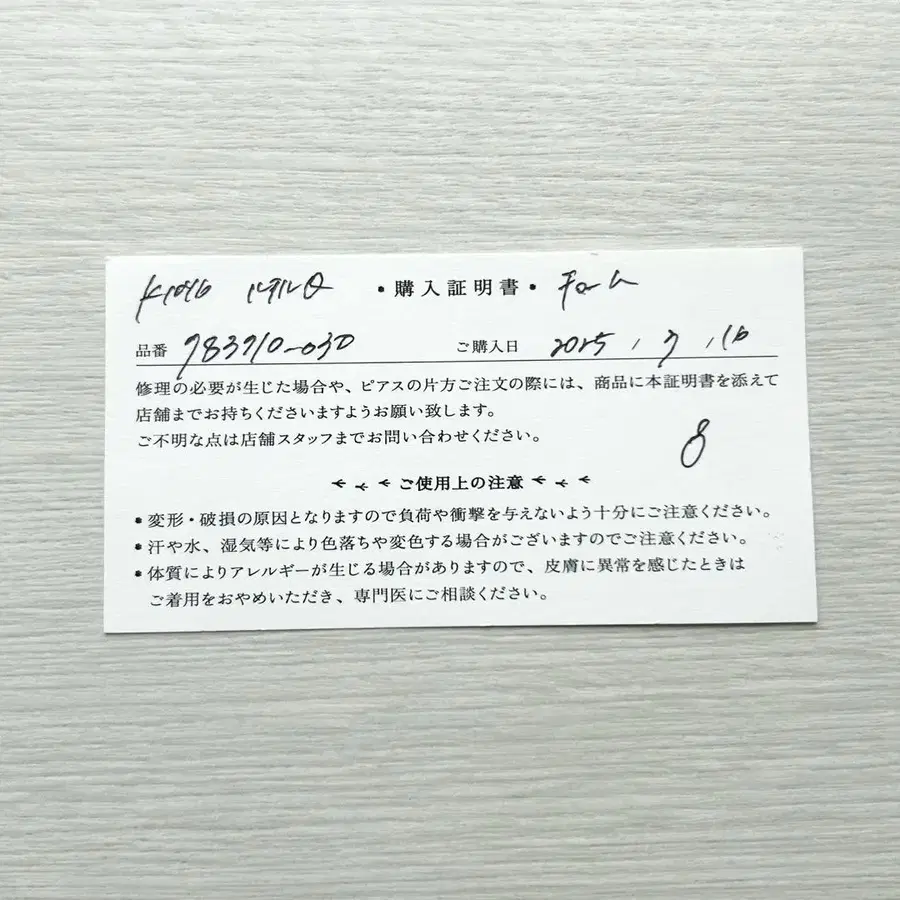 • 購入証明書 •
品番 783710-030 ご購入日 2025 . 7 . 16
修理の必要が生じた場合や、ピアスの片方ご注文の際には、商品に本証明書を添えて
店舗までお持ちくださいますようお願い致します。
ご不明な点は店舗スタッフまでお問い合わせください。
8
ご使用上の注意
• 変形・破損の原因となりますので負荷や衝撃を与えないよう十分にご注意ください。
• 汗や水、湿気等により色落ちや変色する場合がございますのでご注意ください。
• 体質によりアレルギーが生じる場合がありますので、皮膚に異常を感じたときは
ご着用をおやめいただき、専門医にご相談ください。